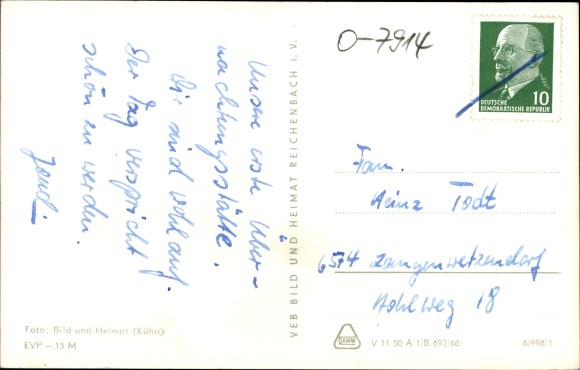 Unsere erste Über-
nachtungsstätte.
Wir sind wohlauf.
Der Tag verspricht
schön zu werden.
Foto: Bild und Heimat (Kühn)
EVP –.15 M
VEB BILD UND HEIMAT REICHENBACH I. V.
O-7914
10
DEUTSCHE
DEMOKRATISCHE REPUBLIK
Fam.
Heinz Todt
6574 Langenwetzendorf
Hohlweg 18
DAMW
V 11 50 A 1/B 692/68
6/998/1